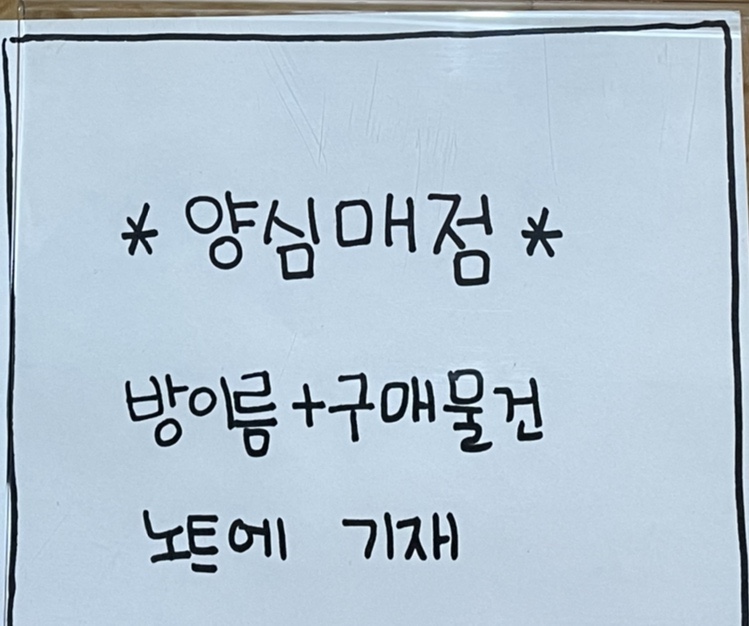 * 양심매점 *
방이름+구매물건
노트에 기재